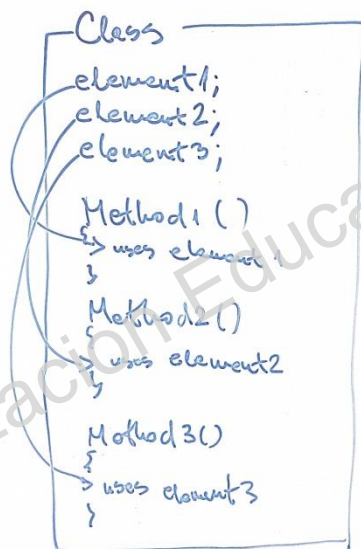 Class
element1;
element2;
element3;
Method1 ()
{
uses element 1
}
Method2()
{
uses element2
}
Method3()
{
uses element3
}
acion Educa